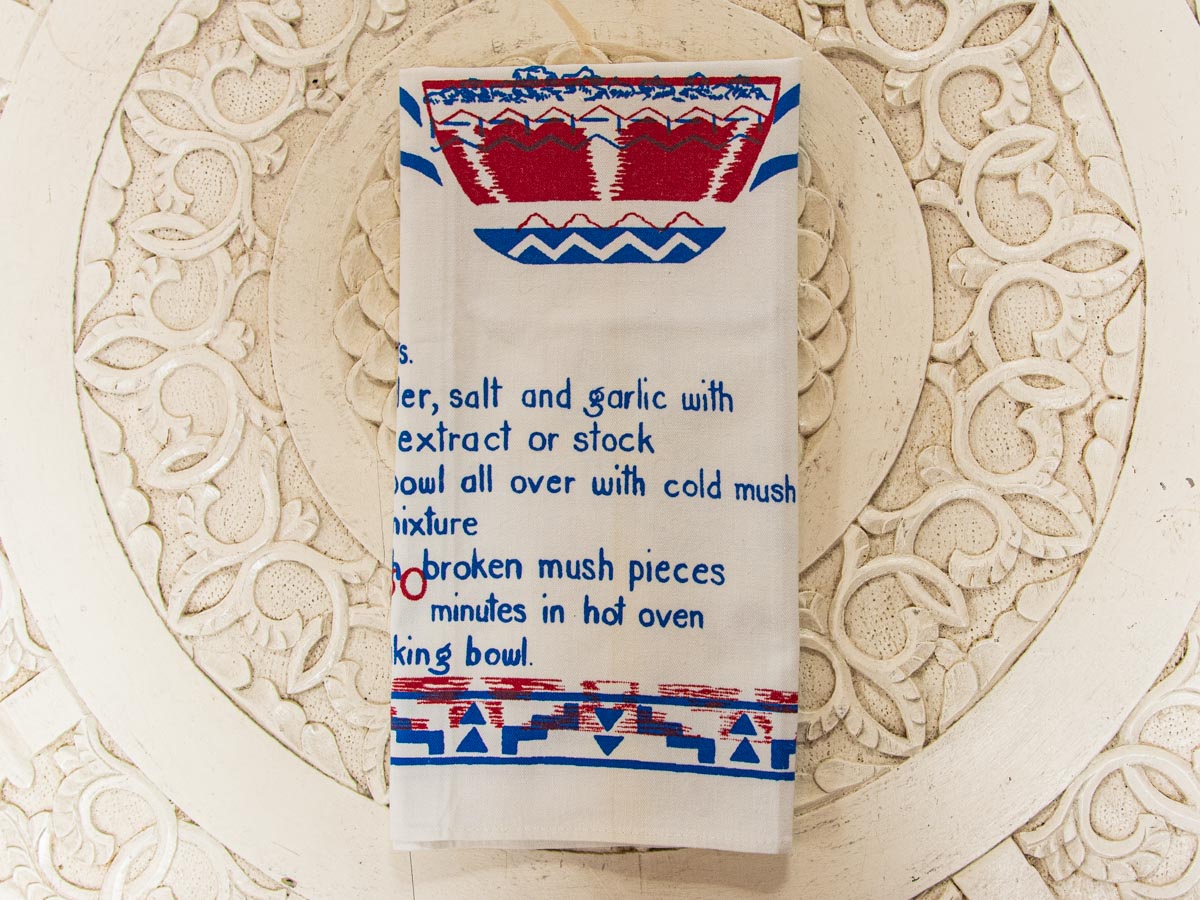 s.
er, salt and garlic with
extract or stock
bowl all over with cold mush
mixture
broken mush pieces
0 minutes in hot oven
king bowl.